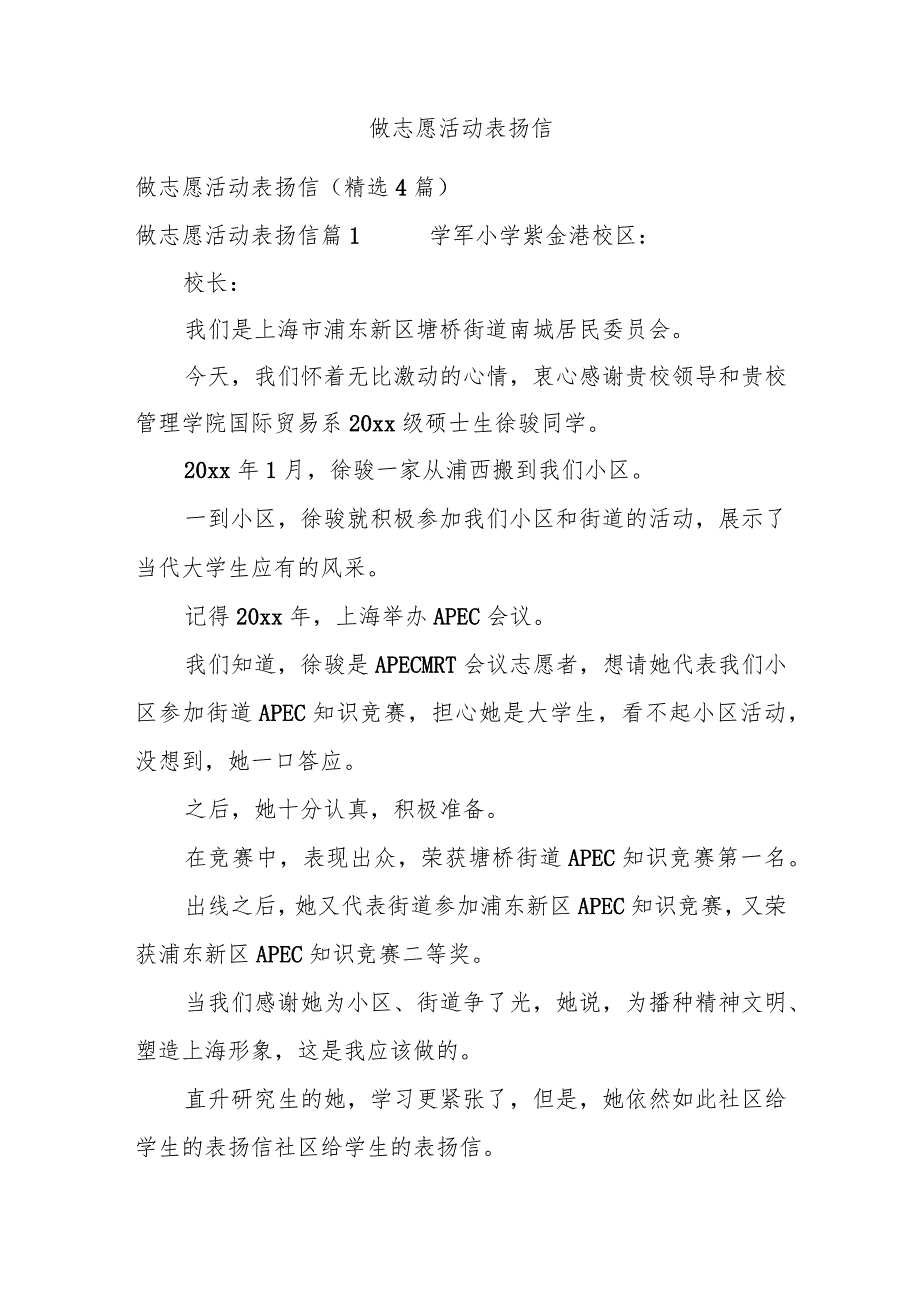 做志愿活动表扬信
做志愿活动表扬信（精选4篇）
做志愿活动表扬信篇1 学军小学紫金港校区：
校长：
我们是上海市浦东新区塘桥街道南城居民委员会。
今天，我们怀着无比激动的心情，衷心感谢贵校领导和贵校
管理学院国际贸易系20xx级硕士生徐骏同学。
20xx年1月，徐骏一家从浦西搬到我们小区。
一到小区，徐骏就积极参加我们小区和街道的活动，展示了
当代大学生应有的风采。
记得20xx年，上海举办APEC会议。
我们知道，徐骏是APECMRT会议志愿者，想请她代表我们小
区参加街道APEC知识竞赛，担心她是大学生，看不起小区活动，
没想到，她一口答应。
之后，她十分认真，积极准备。
在竞赛中，表现出众，荣获塘桥街道APEC知识竞赛第一名。
出线之后，她又代表街道参加浦东新区APEC知识竞赛，又荣
获浦东新区APEC知识竞赛二等奖。
当我们感谢她为小区、街道争了光，她说，为播种精神文明、
塑造上海形象，这是我应该做的。
直升研究生的她，学习更紧张了，但是，她依然如此社区给
学生的表扬信社区给学生的表扬信。